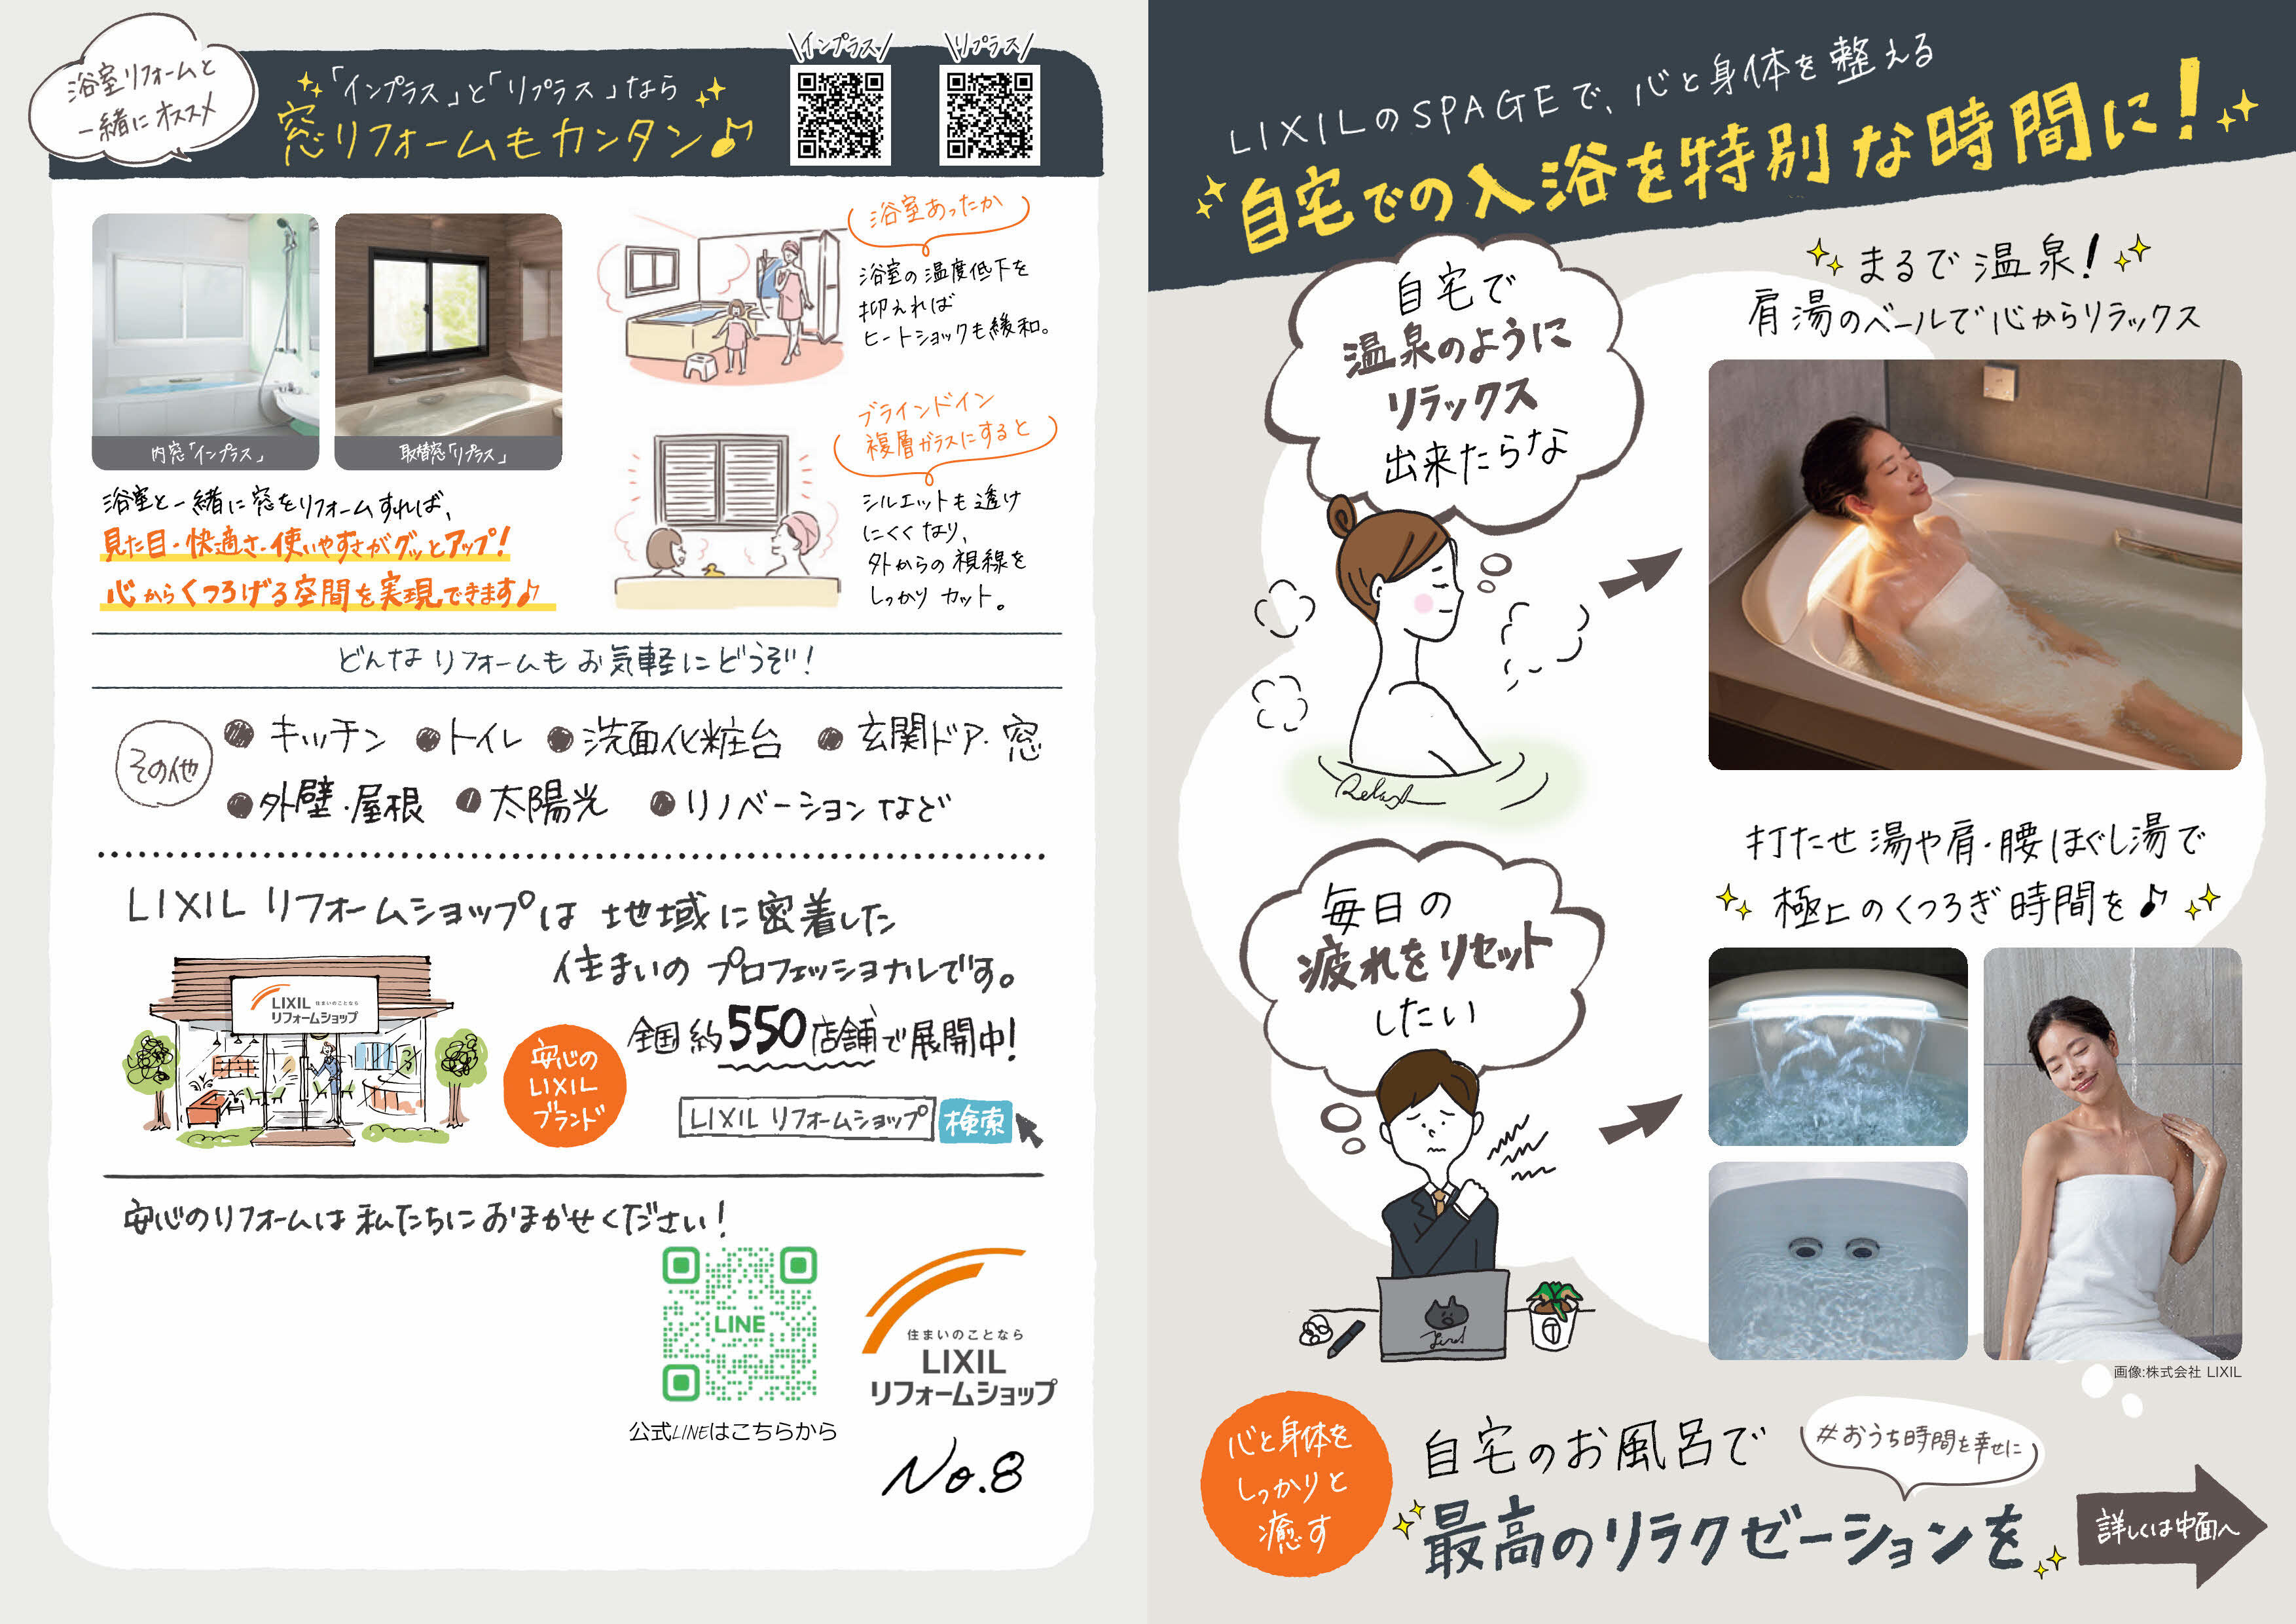 浴室リフォームと
一緒にオススメ
「インプラス」と「リプラス」なら
窓リフォームもカンタン♪
\インプラス/
\リプラス/
内窓「インプラス」
取替窓「リプラス」
浴室と一緒に窓をリフォームすれば、
見た目・快適さ・使いやすさがグッとアップ!
心からくつろげる空間を実現できます♪
浴室あったか
浴室の温度低下を
抑えれば
ヒートショックも緩和。
ブラインドイン
複層ガラスにすると
シルエットも透け
にくくなり、
外からの視線を
しっかりカット。
どんなリフォームもお気軽にどうぞ!
その他
●キッチン ●トイレ ●洗面化粧台 ●玄関ドア・窓
●外壁・屋根 ●太陽光 ●リノベーションなど
LIXILリフォームショップは地域に密着した
住まいのプロフェッショナルです。
全国約550店舗で展開中!
LIXIL 住まいのことなら
リフォームショップ
安心の
LIXIL
ブランド
LIXIL リフォームショップ 検索
安心のリフォームは私たちにおまかせください!
LINE
公式LINEはこちらから
住まいのことなら
LIXIL
リフォームショップ
No.8
LIXILのSPAGEで、心と身体を整える
自宅での入浴を特別な時間に!
自宅で
温泉のように
リラックス
出来たらな
Relax
まるで温泉!
肩湯のベールで心からリラックス
毎日の
疲れをリセット
したい
打たせ湯や肩・腰ほぐし湯で
極上のくつろぎ時間を♪
画像:株式会社 LIXIL
心と身体を
しっかりと
癒す
自宅のお風呂で
#おうち時間を幸せに
最高のリラクゼーションを
詳しくは中面へ